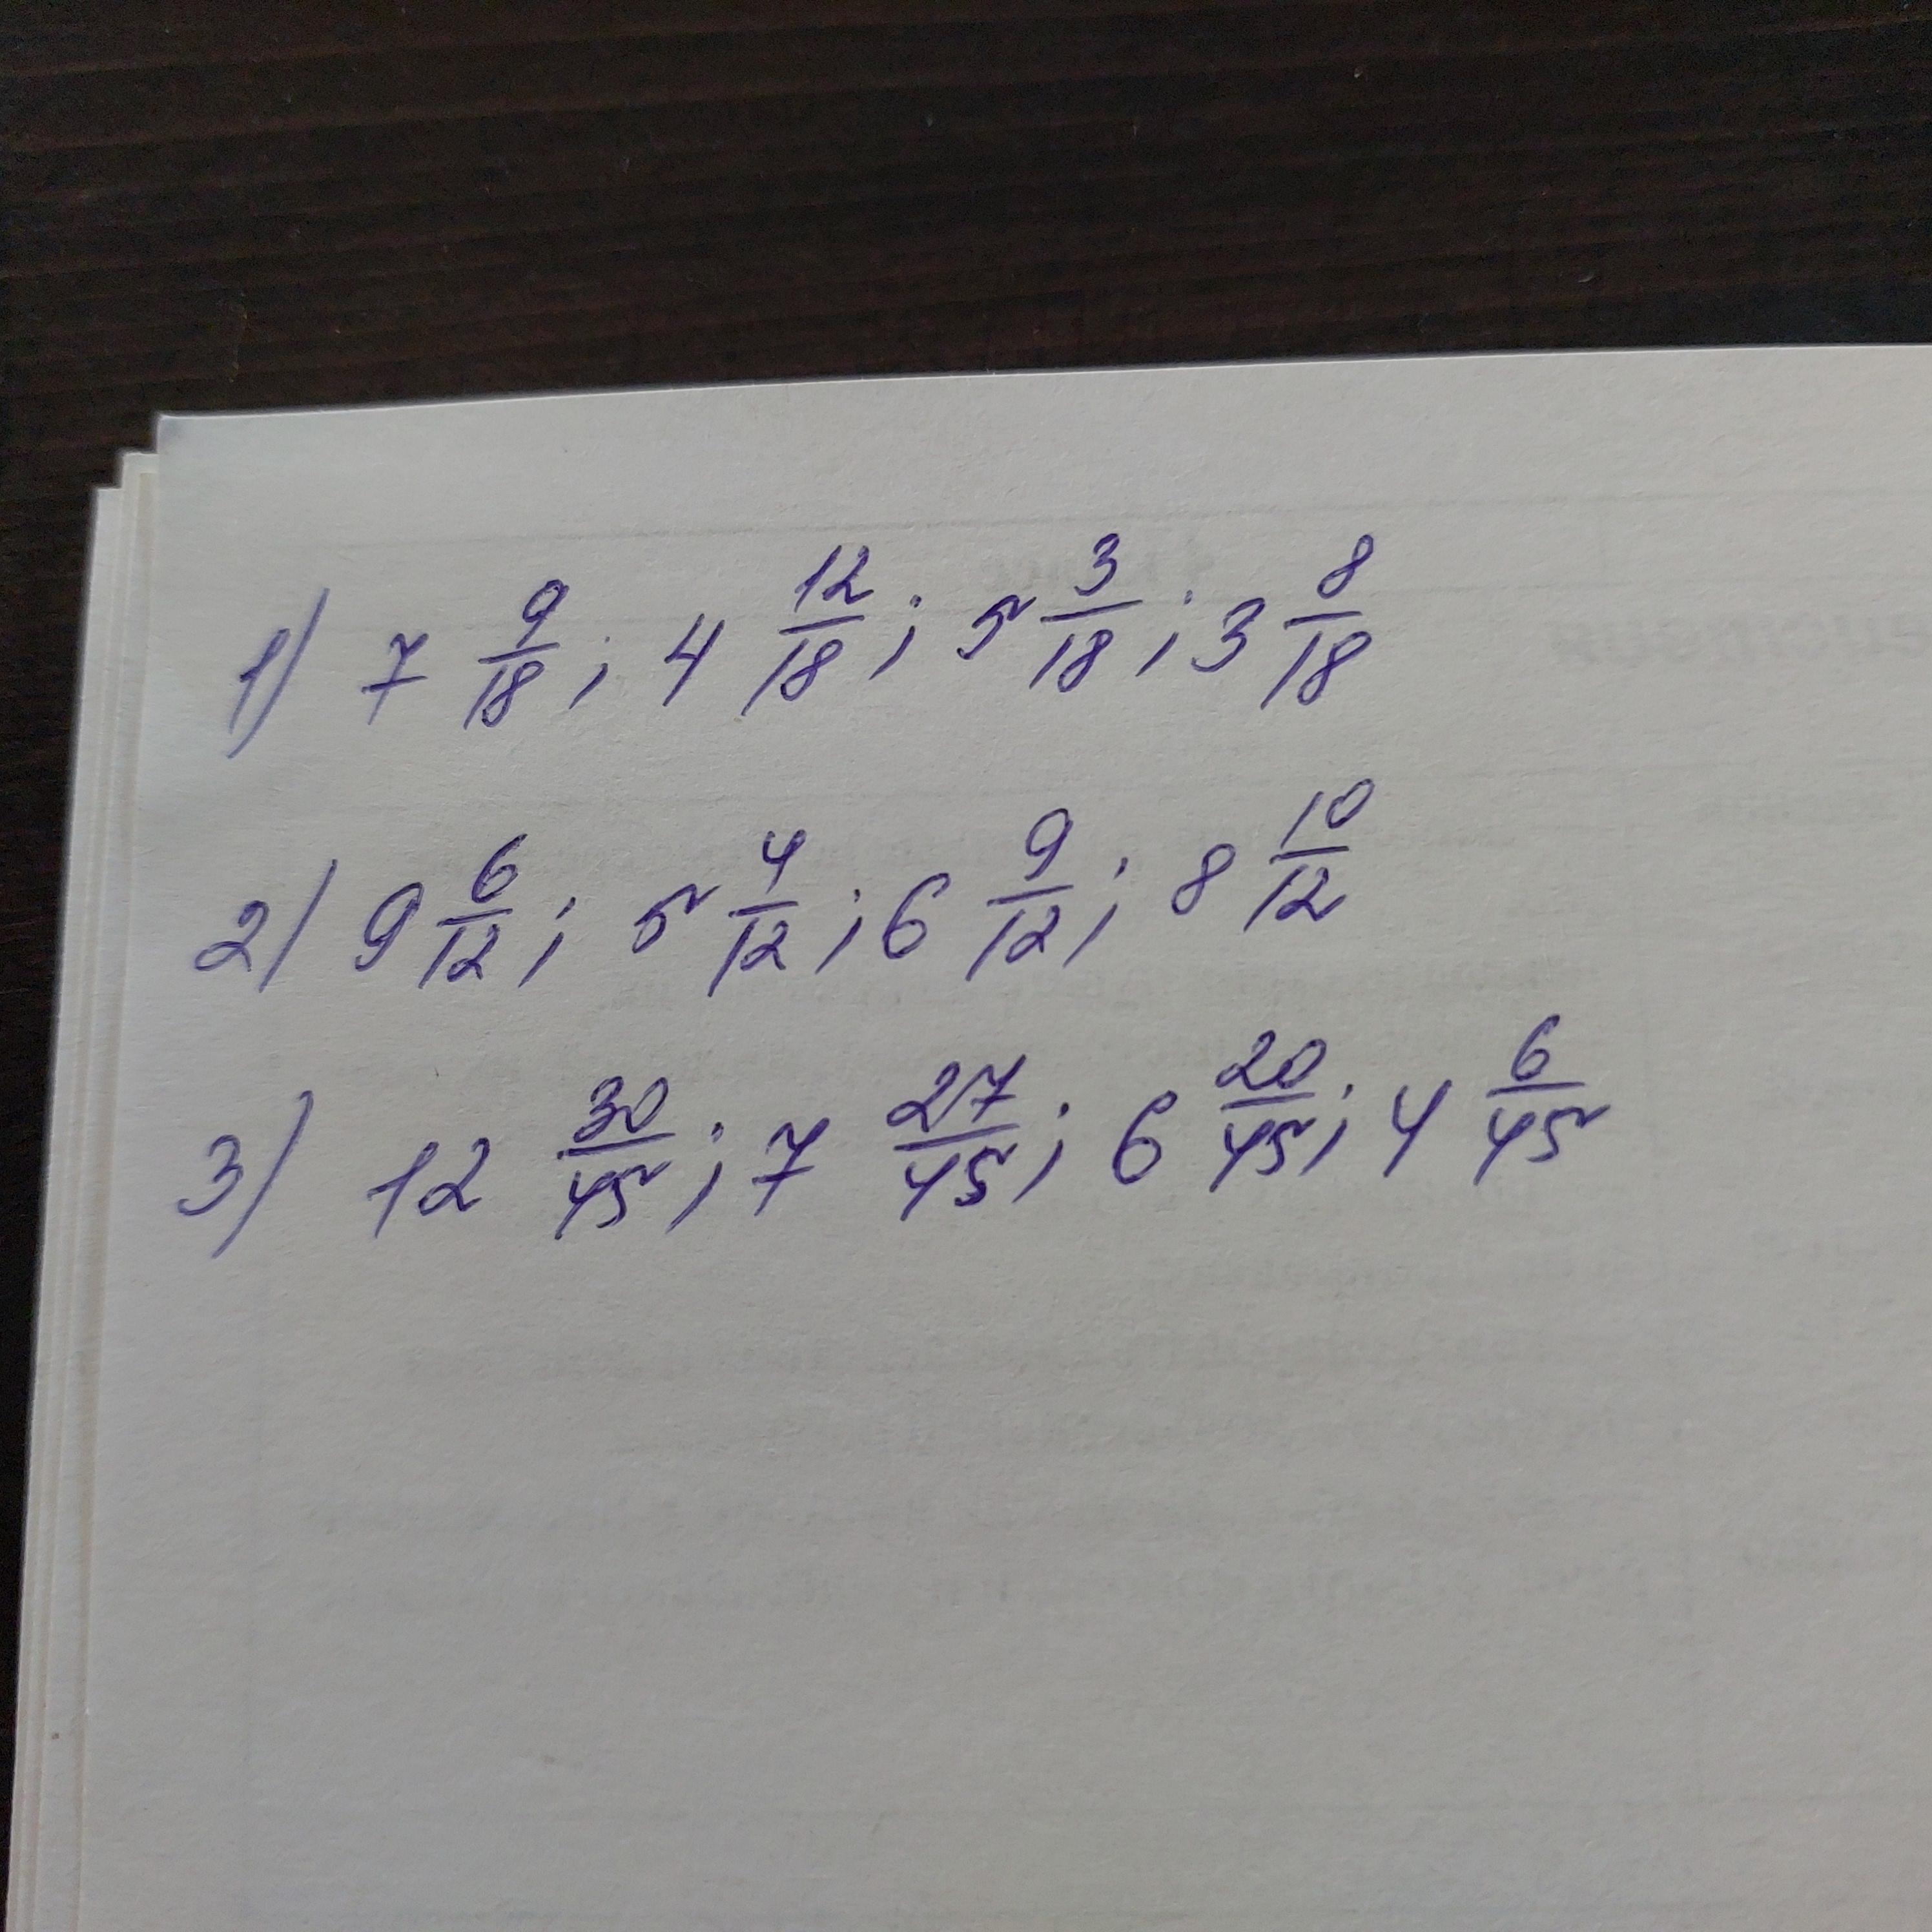 1) 7 9/18; 4 12/18; 5 3/18; 3 8/18
2) 9 6/12; 5 4/12; 6 9/12; 8 10/12
3) 12 30/45; 7 27/45; 6 20/45; 4 6/45